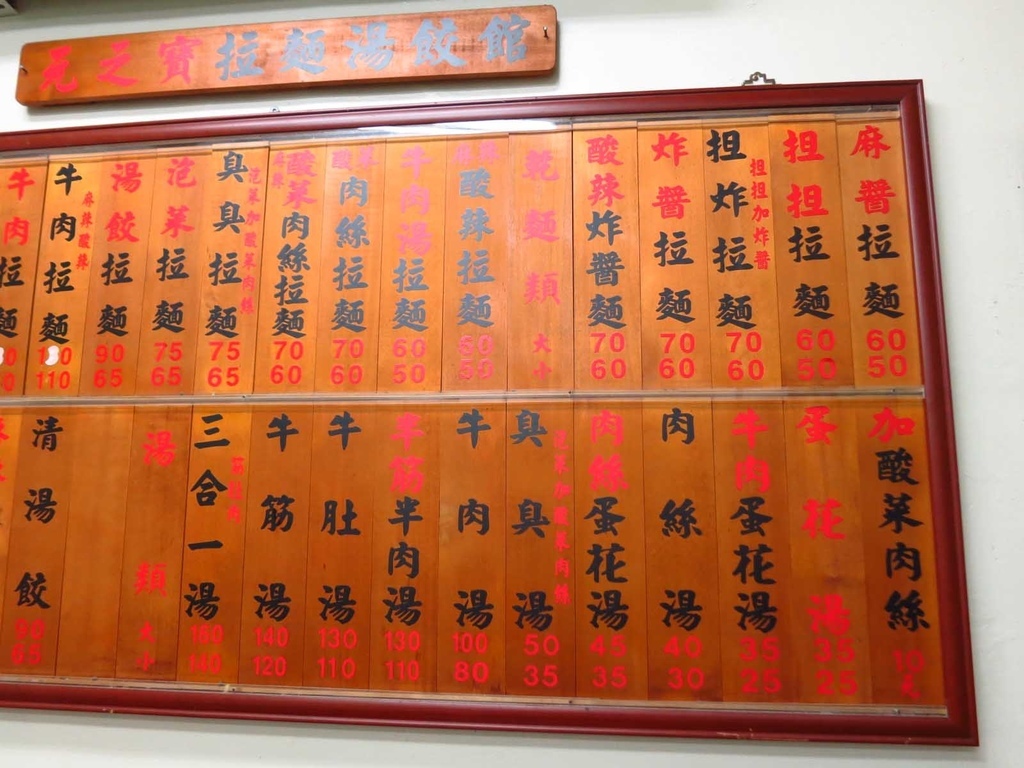 元之寶拉麵湯餃館
麻醬拉麵 60 50
担担拉麵 60 50
担炸拉麵 担担加炸醬 70 60
炸醬拉麵 70 60
酸辣炸醬麵 70 60
乾麵類 大 小
麻辣酸辣拉麵 60 50
牛肉湯拉麵 60 50
酸菜肉絲拉麵 70 60
麻辣酸菜肉絲拉麵 70 60
臭臭拉麵 泡菜加酸菜肉絲 75 65
泡菜拉麵 75 65
湯餃拉麵 90 65
牛肉拉麵 麻辣酸辣 110
牛肉拉麵
加酸菜肉絲 10元
蛋花湯 35 25
牛肉蛋花湯 35 25
肉絲湯 40 30
肉絲蛋花湯 45 35
臭臭湯 泡菜加酸菜肉絲 50 35
牛肉湯 100 80
半筋半肉湯 130 110
牛肚湯 130 110
牛筋湯 140 120
三合一湯 筋肚肉 160 140
湯類 大 小
清湯餃 90 65